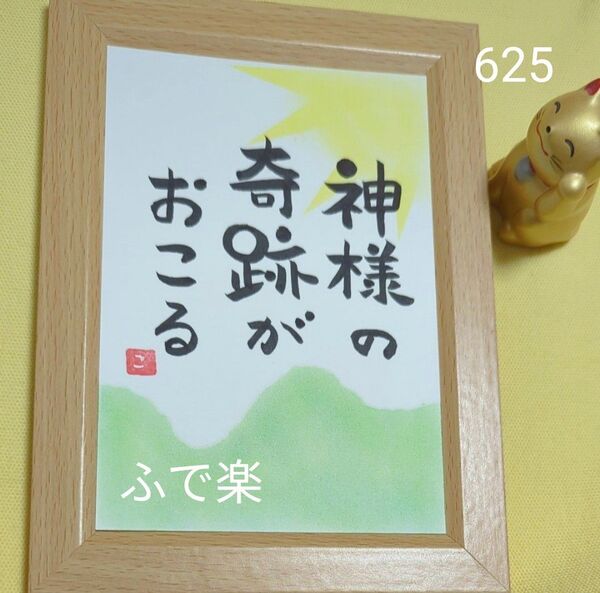 625
神様の
奇跡が
おこる
こ
ふで楽